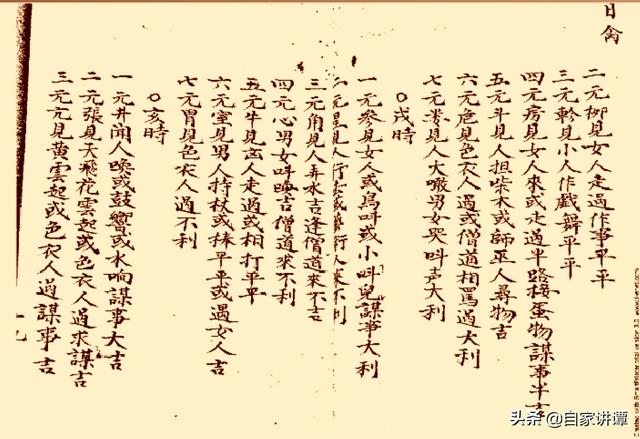 日禽
二元柳見女人走過作事平平
三元軫見小人作戲舞平平
四元房見女人來或走過半路接蛋物謀事半吉
五元斗見人担柴木或師巫人尋物吉
六元危見色衣人過或僧道相罵過大利
七元婁見人大噉男女哭叫声大利
○戌時
一元參見女人或鳥叫或小叫兒謀事大利
二元見人行或人來不利
三元角見人弄水吉逢僧道來不吉
四元心男女叫吉僧道來不利
五元牛見人走過或相打平平
六元室見男人持杖或棒平平或過女人吉
七元胃見色衣人過不利
○亥時
一元井聞人喚或鼓響或水响謀事大吉
二元張見天飛花雲起或色衣人過求謀吉
三元亢見黃雲起或色衣人過謀事吉
十九
头条 @自家讲谭